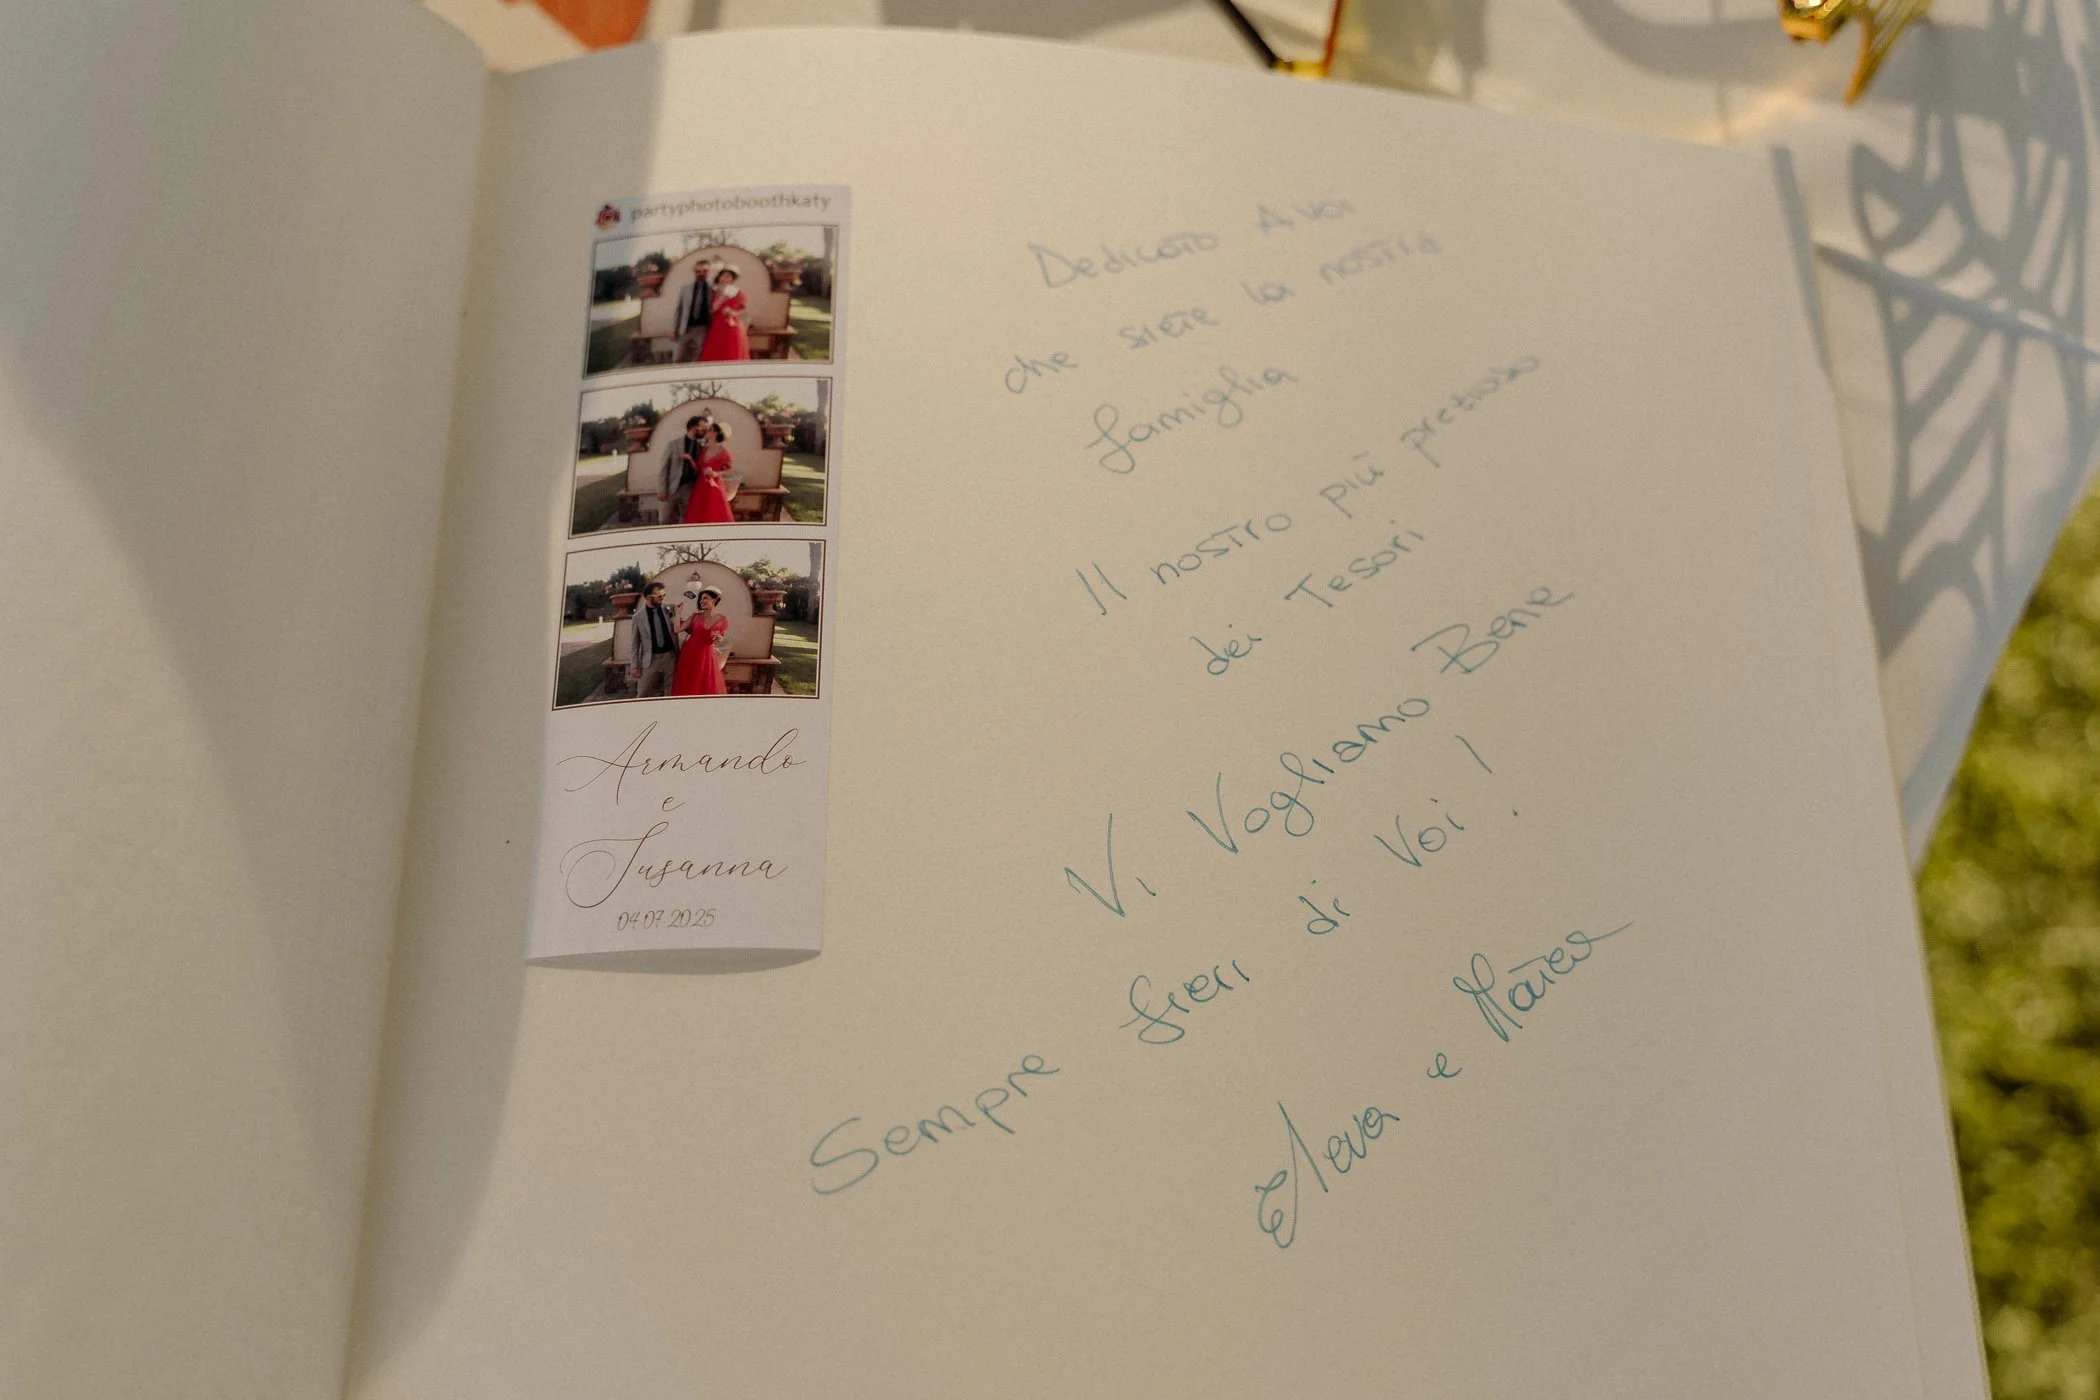 partyphotoboothkaty
Armando
e
Susanna
04.07.2025
Dedicato A voi
che siete la nostra
famiglia
Il nostro più prezioso
dei Tesori
Vi Vogliamo Bene
Sempre fieri di Voi!
Elena e Matteo